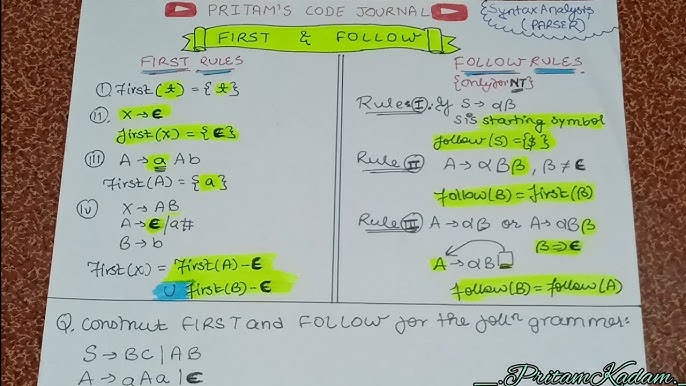 PRITAM'S CODE JOURNAL
Syntax Analysis
(PARSER)
FIRST & FOLLOW
FIRST RULES
i) First(t) = {t}
ii) X → Є
First(X) = {Є}
iii) A → a Ab
First(A) = {a}
iv) X → AB
A → Є/a#
B → b
First(X) = First(A) - Є
∪ First(B) - Є
FOLLOW RULES
{Only for NT}
Rules I. If S → αβ
S is starting symbol
Follow(S) = {$}
Rule II A → αBβ, β ≠ Є
Follow(B) = First(β)
Rule III A → αB or A → αBβ
β → Є
A → αB
Follow(B) = Follow(A)
Q. Construct FIRST and FOLLOW for the follⁿ grammer:
S → BC | AB
A → aAa | Є
__.PritamKadam.